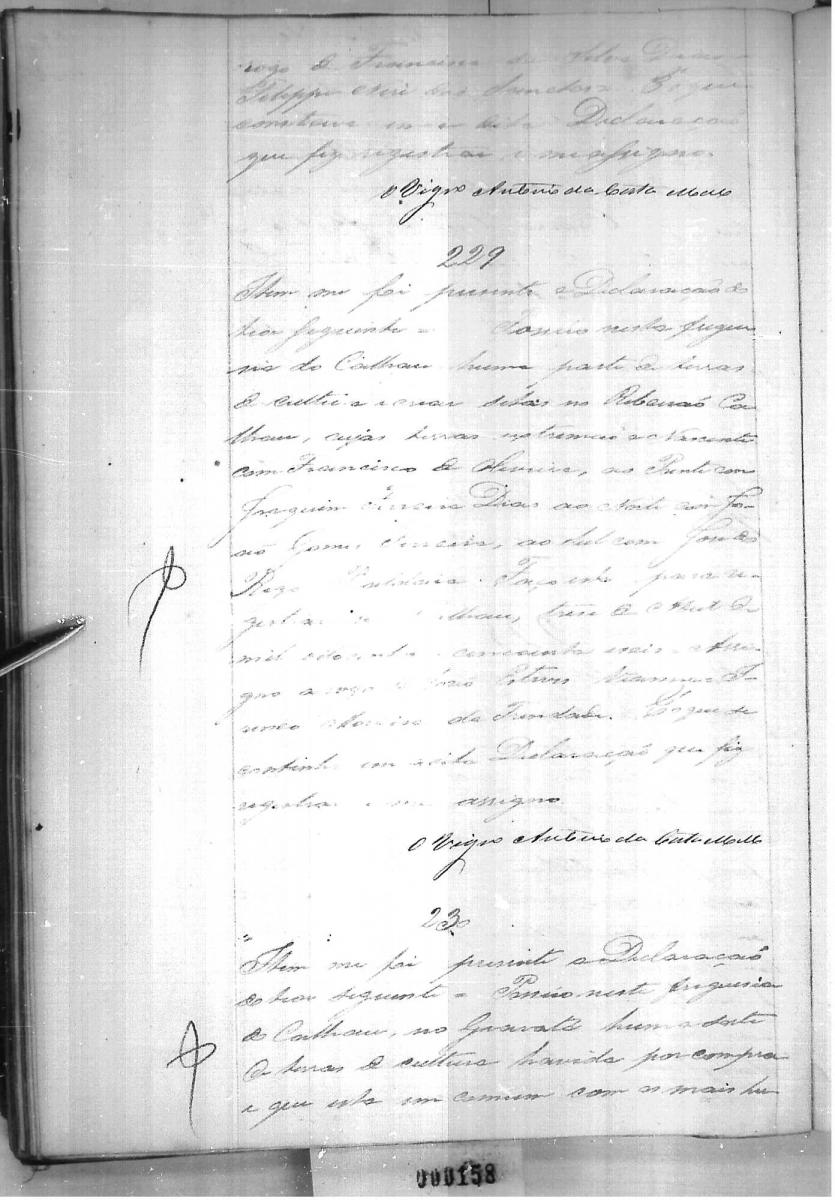 rogo de Francisco da Silva Dias
Filippe Neri dos Sanctos. E o que
continha em a dita Declaração
que fiz registrar e me assigno.
O Vigro Antonio da Costa Mello
229
Item me foi presente a Declaração do
thior seguinte = Possuo nesta fregue
sia do Calhau huma parte de terras
de cultura e criar sitas no Ribeirão Ca
lhau, cujas terras extremão a Nascente
com Francisco de Oliveira, ao Poente com
Joaquim Dias ao Norte com Jo
ão Gomes Ferreira, ao Sul com José do
Rego Faço esta para re
gistrar lhau, tres de Abril de
mil oitocentos cincoenta e seis. Assi
gno a rogo de João Esteves Vianna
Moreira da Trindade. E o que se
continha em a dita Declaração que fiz
registrar e me assigno.
O Vigro Antonio da Costa Mello
230
Item me foi presente a Declaração
do thior seguinte = Possuo nesta freguesia
do Calhau, no Gravatá huma sorte
de terras de cultura havida por compra
e que esta em comum com os mais her
000158